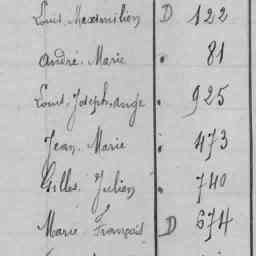 Louis Maximilien D 122
André Marie . 81
Louis Joseph Ange . 925
Jean Marie . 473
Gilles Julien . 740
Marie François D 674